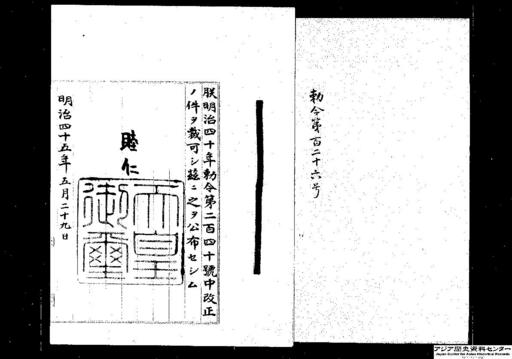 勅令第百二十六号
朕明治四十年勅令第二百四十號中改正
ノ件ヲ裁可シ茲ニ之ヲ公布セシム
睦仁
天皇
御璽
明治四十五年五月二十九日
アジア歴史資料センター
Japan Center for Asian Historical Records